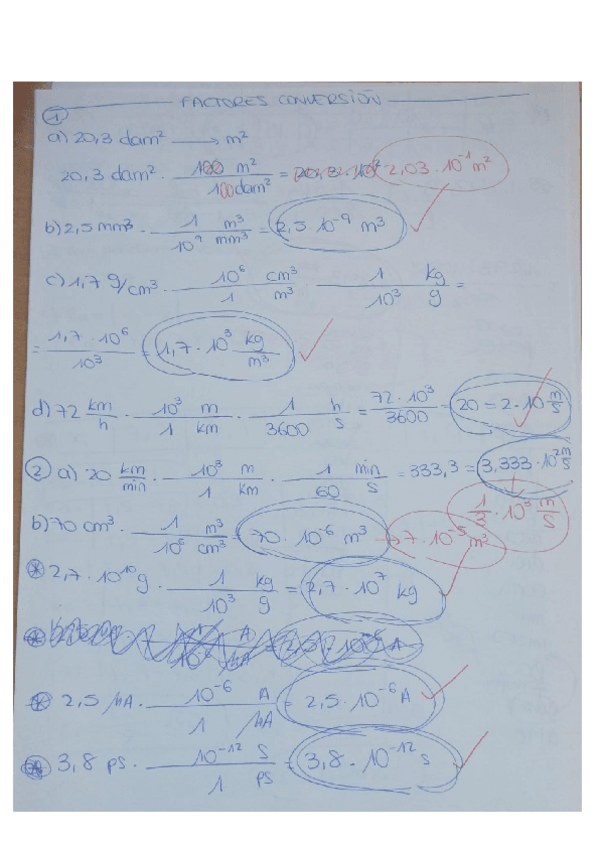 FACTORES CONVERSIÓN
① a) 20,3 dam² → m²
20,3 dam² · 100 m² / 100 dam² = 2,03 · 10⁻¹ m²
b) 2,5 mm³ · 1 m³ / 10⁹ mm³ = 2,5 · 10⁻⁹ m³
c) 1,7 g/cm³ · 10⁶ cm³ / 1 m³ · 1 kg / 10³ g =
= 1,7 · 10⁶ / 10³ = 1,7 · 10³ kg/m³
d) 72 km/h · 10³ m / 1 km · 1 h / 3600 s = 72 · 10³ / 3600 = 20 = 2 · 10 m/s
② a) 20 km/min · 10³ m / 1 km · 1 min / 60 s = 333,3 = 3,333 · 10² m/s
1/3 · 10³ m/s
b) 70 cm³ · 1 m³ / 10⁶ cm³ = 70 · 10⁻⁶ m³ → 7 · 10⁻⁵ m³
* 2,7 · 10¹⁰ g · 1 kg / 10³ g = 2,7 · 10⁷ kg
* 2,5 μA · 10⁻⁶ A / 1 μA = 2,5 · 10⁻⁶ A
3,8 ps · 10⁻¹² s / 1 ps = 3,8 · 10⁻¹² s